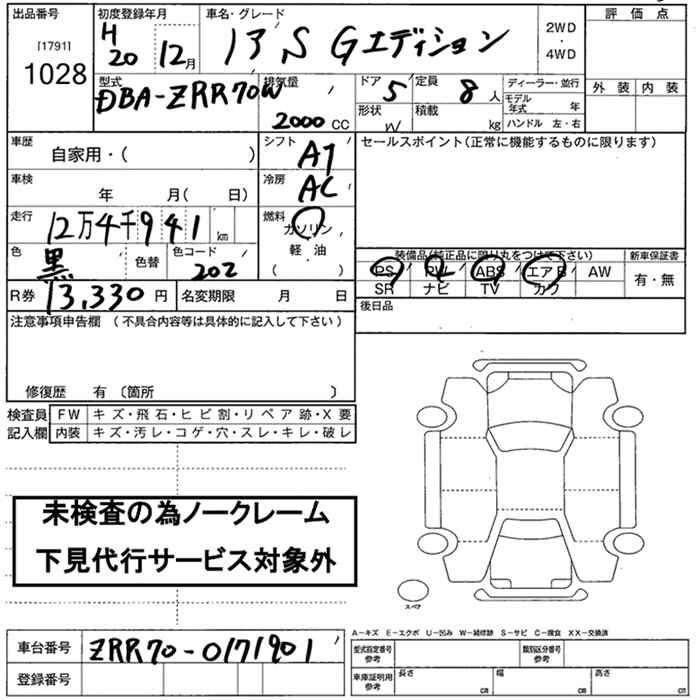 出品番号
[1791]
1028
初度登録年月
H
20 12月
車名・グレード
ノア S Gエディション
2WD
・
4WD
評価点
外装 内装
型式
DBA-ZRR70W
排気量
2000 CC
ドア 5
形状 W
定員 8 人
積載 kg
ディーラー・並行
モデル年式 年
ハンドル 左・右
車歴
自家用・( )
シフト
AT
セールスポイント(正常に機能するものに限ります)
車検
年 月( 日)
冷房
AC
走行
12万4千941 km
燃料
ガソリン
軽・油
( )
色
黒
色替
色コード
202
装備品(純正品に限り丸をつけて下さい)
PS PW ABS エアB AW
SR ナビ TV カワ
新車保証書
有・無
R券 13,330 円
名変期限 月 日
後日品
注意事項申告欄 (不具合内容等は具体的に記入して下さい)
修復歴 有 〔箇所 〕
検査員
記入欄
FW キズ・飛石・ヒビ割・リペア跡・X要
内装 キズ・汚レ・コゲ・穴・スレ・キレ・破レ
未検査の為ノークレーム
下見代行サービス対象外
スペア
A-キズ E-エクボ U-凹み W-補修跡 S-サビ C-腐食 XX-交換済
車台番号 ZRR70-0171901
登録番号
型式指定番号
参考
類別区分番号
参考
車庫証明用
参考
長さ cm
幅 cm
高さ cm